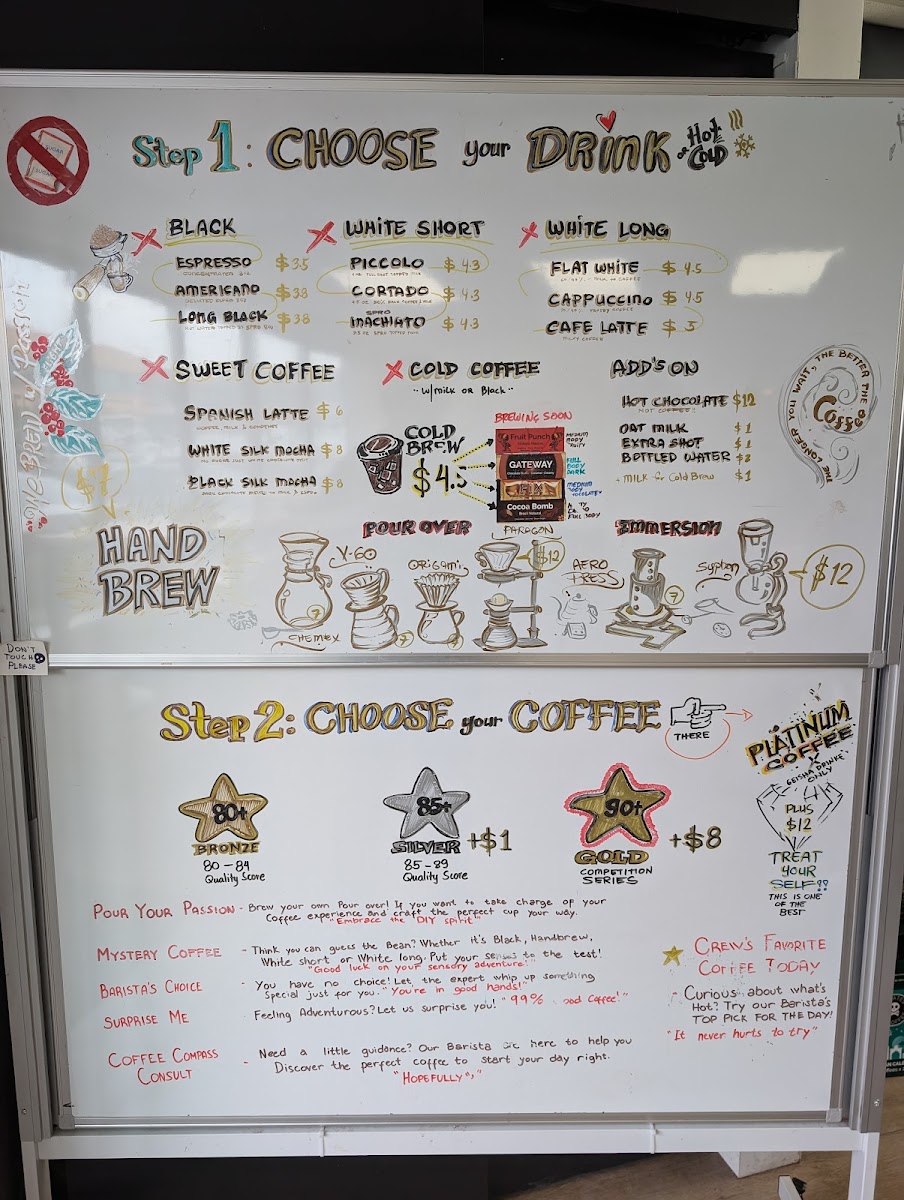 SUGAR
SUGAR
Step 1: CHOOSE your DRINK Hot or COLD
BLACK
ESPRESSO $3.5
AMERICANO $3.8
LONG BLACK $3.8
WHITE SHORT
PICCOLO $4.3
CORTADO $4.3
MACHIATO $4.3
WHITE LONG
FLAT WHITE $4.5
CAPPUCCINO $4.5
CAFE LATTE $5
SWEET COFFEE
SPANISH LATTE $6
WHITE SILK MOCHA $8
BLACK SILK MOCHA $8
COLD COFFEE
"w/milk or Black"
COLD BREW
$4.5
BREWING SOON
Fruit Punch
MEDIUM BODY FRUITY
GATEWAY
FULL BODY DARK
MEDIUM BODY
Cocoa Bomb
FULL BODY
ADD'S ON
HOT CHOCOLATE $12
NOT COFFEE!!
OAT MILK $1
EXTRA SHOT $1
BOTTLED WATER
+ MILK for Cold Brew $1
THE LONGER YOU WAIT, THE BETTER THE Coffee
We BREW w/ Passion
HAND BREW
POUR OVER
CHEMEX 7
V-60 7
ORIGAMI 7
PARAGON $12
IMMERSION
AERO PRESS 7
Syphon $12
DON'T
TOUCH
PLEASE
Step 2: CHOOSE your COFFEE
THERE
PLATINUM
COFFEE
GEISHA DRINKS
ONLY
PLUS
$12
TREAT
YOUR
SELF!!
THIS IS ONE
OF THE
BEST
80+
BRONZE
80-84
Quality Score
85+
SILVER +$1
85-89
Quality Score
90+
GOLD +$8
COMPETITION
SERIES
POUR YOUR PASSION - Brew your own Pour over! If you want to take charge of your
Coffee experience and craft the perfect cup your way.
"Embrace the DIY spirit"
MYSTERY COFFEE - Think you can guess the Bean? Whether it's Black, Handbrew,
White short or White long. Put your senses to the test!
"Good luck on your sensory adventure!"
BARISTA'S CHOICE - You have no choice! Let the expert whip up something
Special just for you. "You're in good hands!"
SURPRISE ME - Feeling Adventurous? Let us surprise you! "99% ood Coffee!"
COFFEE COMPASS
CONSULT - Need a little guidance? Our Barista is here to help you
Discover the perfect coffee to start your day right.
"HOPEFULLY"
CREW'S FAVORITE
COFFEE TODAY
- Curious about what's
Hot? Try our Barista's
TOP PICK FOR THE DAY!
"It never hurts to try"